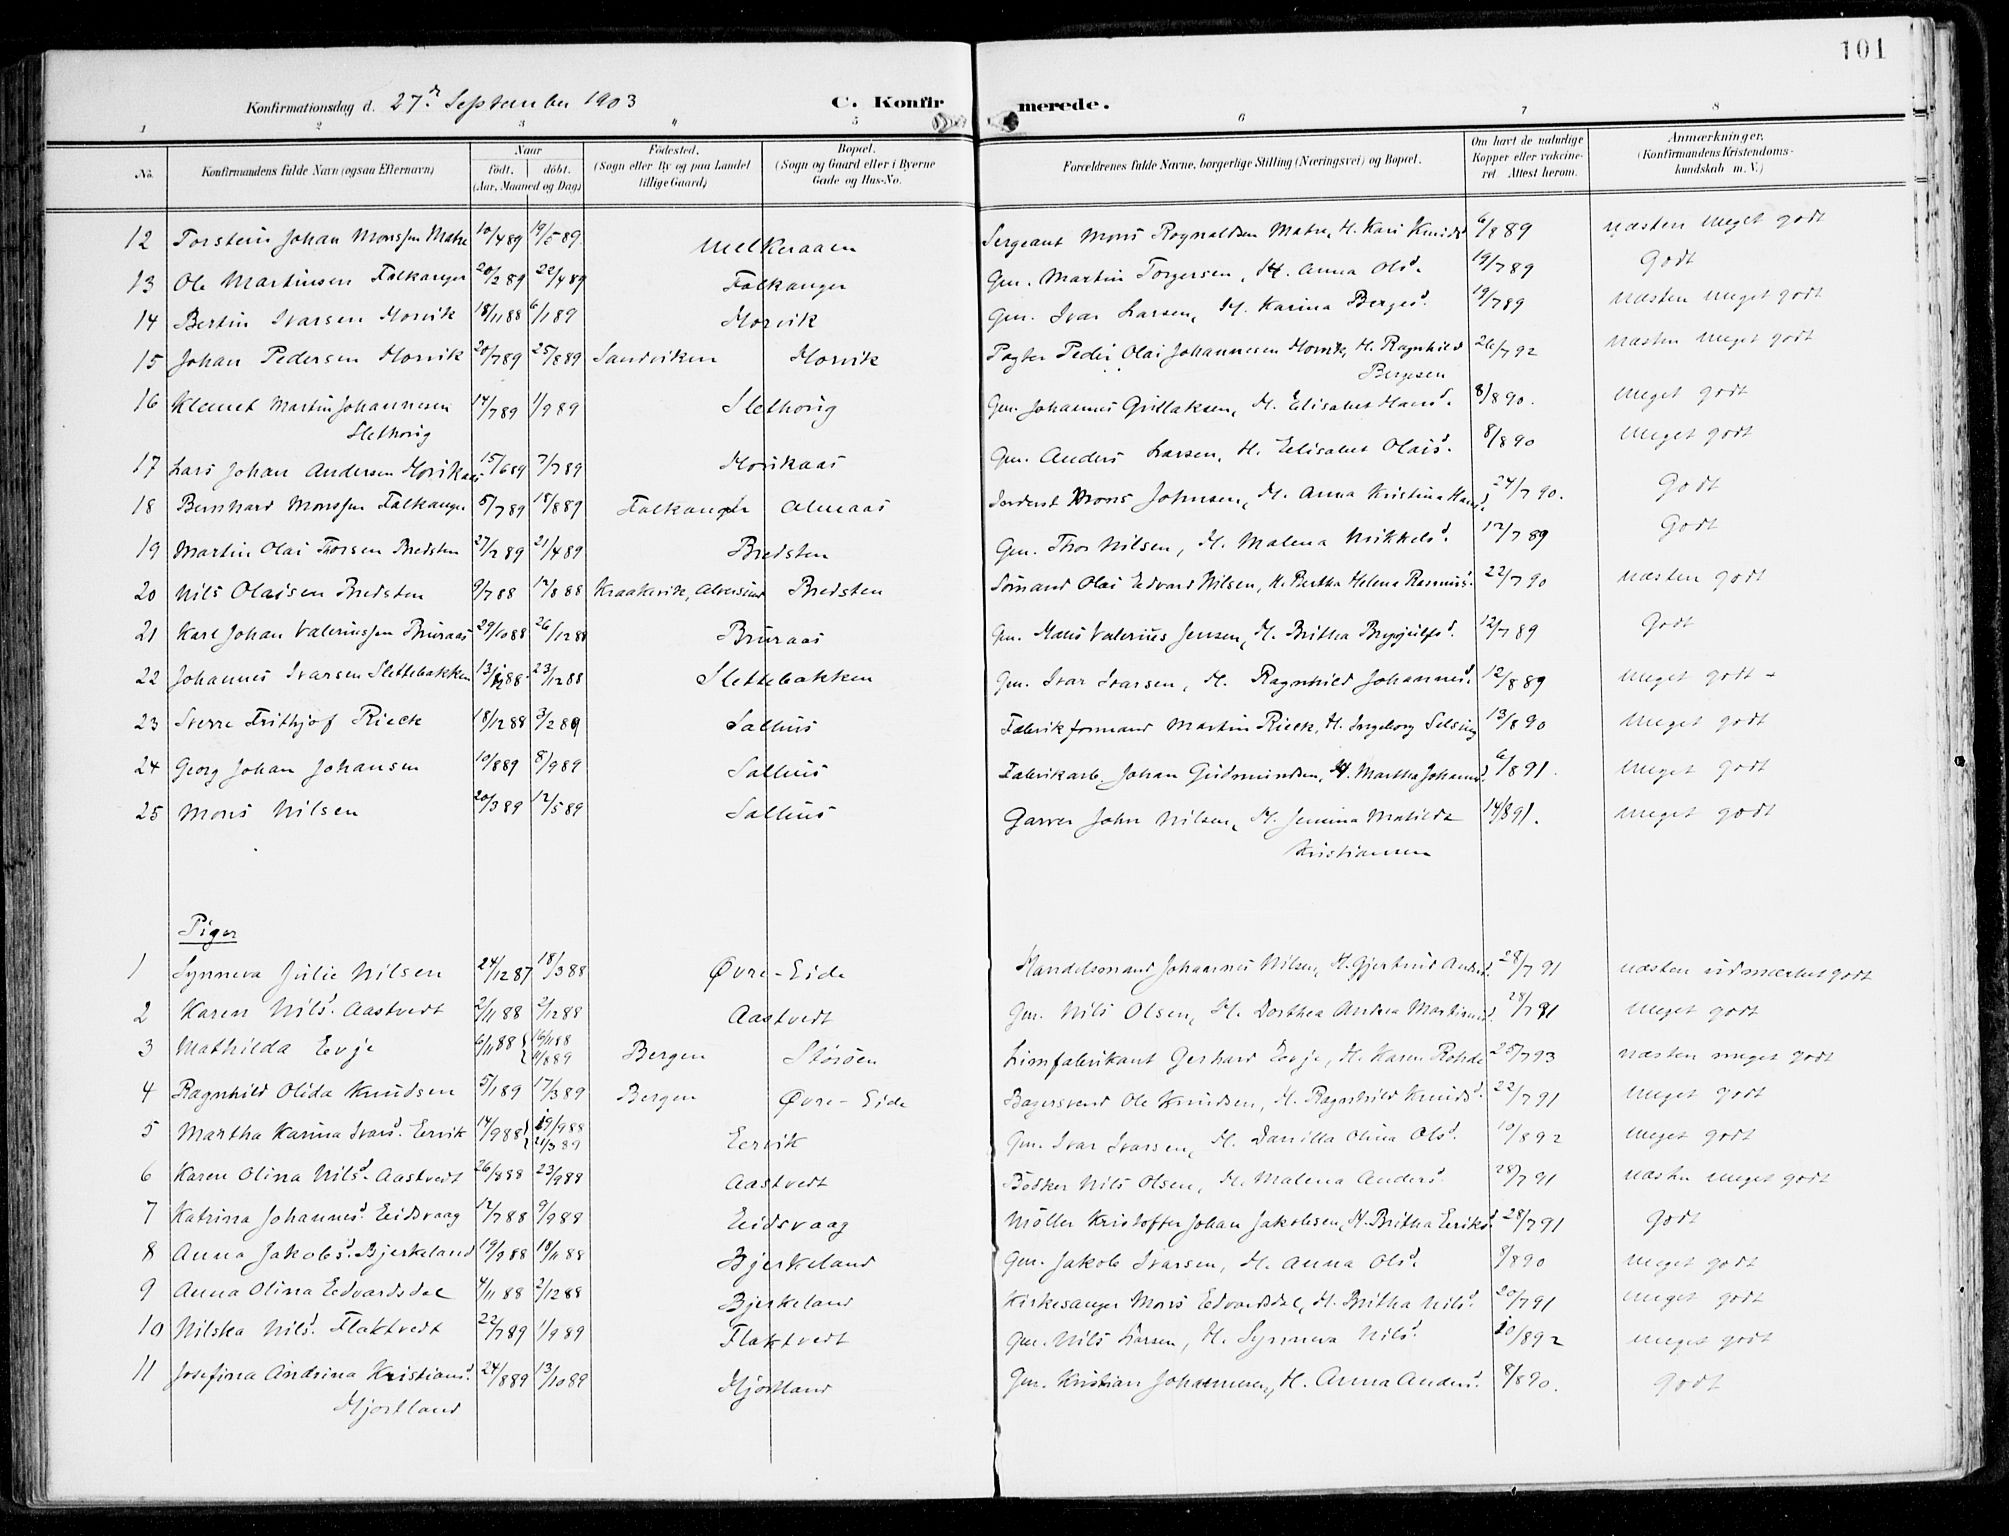 101
Konfirmationsdag d. 27de September 1903 C. Konfirmerede.
1 2 3 4 5 6 7 8
No. Konfirmandens fulde Navn (ogsaa Efternavn) Naar født, døbt. (Aar, Maaned og Dag) Fødested. (Sogn eller By og paa Landet tillige Gaard) Bopæl. (Sogn og Gaard eller i Byerne Gade og Hus-No. Forældrenes fulde Navne, borgerlige Stilling (Næringsvei) og Bopæl. Om havt de naturlige Kopper eller vakcineret. Attest herom. Anmærkninger. (Konfirmandens Kristendomskundskab m. V.)
12 Torstein Johan Monssen Matre 10/4 89 19/5 89 Melkeraaen Sergeant Mons Ragnaldsen Matre, H. Kari Knudsd. 6/8 89 næsten meget godt
13 Ole Martinsen Falkanger 20/2 89 22/4 89 Falkanger Gm. Martin Torgersen, H. Anna Olsd. 19/7 89 Godt
14 Bertin Ivarsen Morvik 18/11 88 6/1 89 Morvik Gm. Ivar Larsen, H. Karina Bergesd. 19/7 89 næsten meget godt
15 Johan Pedersen Morvik 20/7 89 25/8 89 Sandviken Morvik Pagter Peder Olai Johannesen Morvik, H. Ragnhild Bergesen 26/7 92 næsten meget godt
16 Klemet Martin Johannesen Slethorig 14/7 89 1/9 89 Slethorig Gm. Johannes Gullaksen, H. Elisabet Hansd. 8/8 90. meget godt
17 Lars Johan Andersen Morikaas 15/6 89 7/7 89 Morikaas Gm. Anders Larsen, H. Elisabet Olaisd. 8/8 90 meget godt
18 Bernhard Monssen Falkanger 5/7 89 18/8 89 Falkanger Almaas Mons Johnsen, H. Anna Kristina Hansd. 24/7 90. Godt
19 Martin Olai Thorsen Bredsten 27/2 89 21/4 89 Bredsten Gm. Thor Nilsen, H. Malena Mikkelsd. 12/7 89 Godt
20 Nils Olaisen Bredsten 9/7 88 12/8 88 Kraakevik, Alversund Bredsten Sømand Olai Edvard Nilsen, H. Bertha Helena Rasmusd. 22/7 90 næsten godt
21 Karl Johan Valeriussen Bruraas 29/10 88 26/12 88 Bruraas Gm. Mats Valerius Jensen, H. Britha Brynjulfsd. 12/7 89 Godt
22 Johannes Ivarsen Slettebakken 13/12 88 23/12 88 Slettebakken Gm. Ivar Ivarsen, H. Ragnhild Johannesd. 12/8 89 meget godt -
23 Sverre Frithjof Rieck 18/12 88 3/2 89 Salhus Fabrikformand Martin Rieck, H. Ingeborg Selsing 13/8 90 meget godt
24 Georg Johan Johansen 10/8 89 8/9 89 Salhus Fabrikarb. Johan Gudmundsen, H. Martha Johansd. 6/8 91. meget godt
25 Mons Nilsen 20/3 89 12/5 89 Salhus Garver John Nilsen, H. Jemina Matilde Kristiansen 14/8 91. meget godt
Piger
1 Synneva Julie Nilsen 24/12 87 18/3 88 Øvre-Eide Handelsmand Johannes Nilsen, H. Gjertrud Andersd. 28/7 91 næsten udmærket godt
2 Karen Nilsd. Aastvedt 2/11 88 2/12 88 Aastvedt Gm. Nils Olsen, H. Dorthea Andrea Martinusd. 28/7 91 meget godt
3 Mathilda Evje 6/11 88 16/11 88 4/8 89 Bergen Storøen Limfabrikant Gerhard Evje, H. Karen Rohde 25/7 93 næsten meget godt
4 Ragnhild Olida Knudsen 5/1 89 17/3 89 Bergen Øvre-Eide Bagersvend Ole Knudsen, H. Ragnhild Knudsd. 22/7 91 meget godt
5 Martha Karina Ivarsd. Eervik 14/9 88 19/9 88 21/3 89 Eervik Gm. Ivar Ivarsen, H. Danilla Olina Olsd. 10/8 92 meget godt
6 Karen Olina Nilsd. Aastvedt 26/8 88 23/9 88 Aastvedt Bødker Nils Olsen, H. Malena Andersd. 28/7 91 næsten meget godt
7 Katrina Johannesd. Eidsvaag 12/7 88 9/9 88 Eidsvaag Møller Kristoffer Johan Jakobsen, H. Britha Eriksd. 28/7 91 Godt
8 Anna Jakobsd. Bjerkeland 19/9 88 18/11 88 Bjerkeland Gm. Jakob Ivarsen, H. Anna Olsd. 8/8 90 meget godt
9 Anna Olina Edvardsdal 4/11 88 2/12 88 Bjerkeland Kirkesanger Mons Edvardsdal, H. Britha Nilsd. 20/7 91 meget godt
10 Nilska Nilsd. Flaktvedt 22/7 89 1/9 89 Flaktvedt Gm. Nils Larsen, H. Synneva Nilsd. 10/8 92 meget godt
11 Josefina Andrina Kristiansd. Mjortland 24/8 89 13/10 89 Mjortland Gm. Kristian Johannesen, H. Anna Andersd. 8/8 90. godt